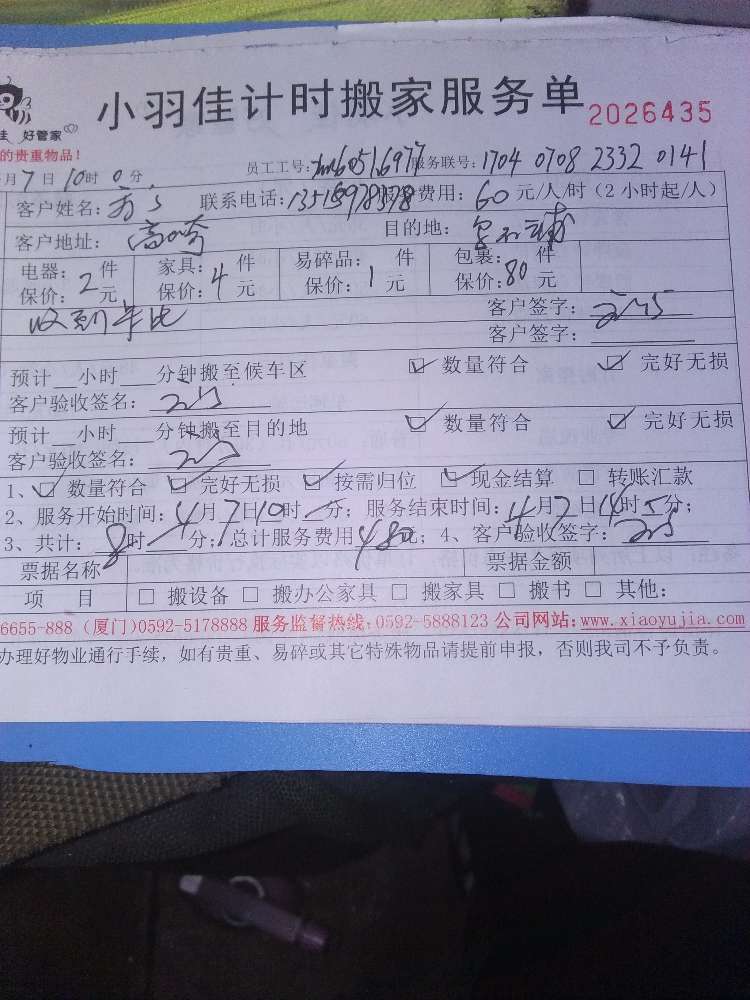 小羽佳计时搬家服务单 2026435
佳 好管家
的贵重物品!
月7日10时0分 员工工号: 服务联号:1704 0708 2332 0141
客户姓名: 联系电话: 服务费用:60元/人/时(2小时起/人)
客户地址:高崎 目的地:
电器:2件 家具:4件 易碎品:1件 包裹:80件
保价: 元 保价: 元 保价: 元 保价: 元
收到
客户签字:
客户签字:
预计__小时___分钟搬至候车区 ☑数量符合 ☑完好无损
客户验收签名:
预计__小时___分钟搬至目的地 ☑数量符合 ☑完好无损
客户验收签名:
1、☑数量符合 ☑完好无损 ☑按需归位 ☑现金结算 □转账汇款
2、服务开始时间:4月7日10时 分;服务结束时间:4月7日14时 分;
3、共计:8时 分;总计服务费用480元;4、客户验收签字:
票据名称 票据金额
项 目 □搬设备 □搬办公家具 □搬家具 □搬书 □其他:
6655-888(厦门)0592-5178888 服务监督热线:0592-5888123 公司网站:www.xiaoyujia.com
办理好物业通行手续,如有贵重、易碎或其它特殊物品请提前申报,否则我司不予负责。